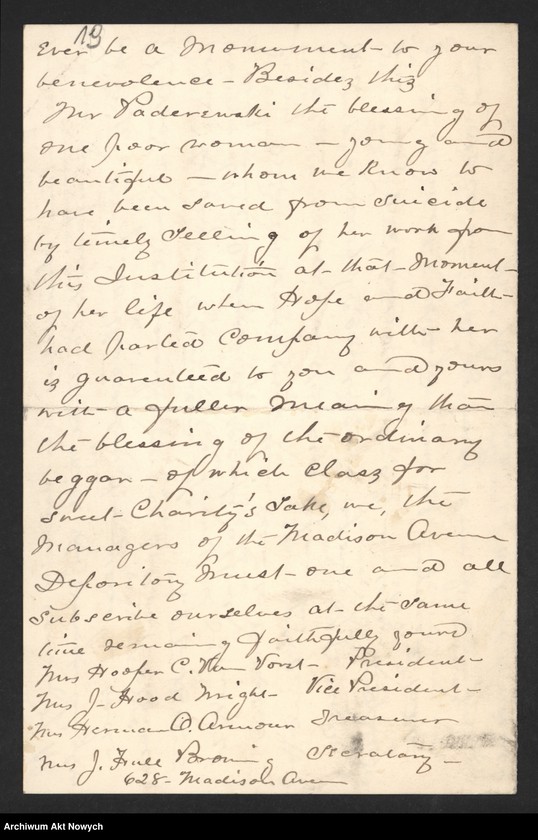 19
Ever be a Monument to your
benevolence - Besidez this
Mr Paderewski the blessing of
one poor woman - young and
beautiful - whom we Know to
have been saved from suicide
by timely Selling of her work from
this Institution at that Moment
of her life when Hope and Faith
had parted Company with her
is guarenteed to you and yours
with a fuller Meaning than
the blessing of the ordinary
beggar - of which Class for
sweet Charity's Sake, we, the
Managers of the Madison Avenue
Depository Must one and all
Subscribe ourselves at the same
time remaining faithfully yours
Mrs Hooper C. Van Vorst - President
Mrs J. Hood Wright - Vice President
Mrs Herman O. Armour Treasurer
Mrs J. Hull Browning Secratary
628 - Madison Aven
Archiwum Akt Nowych